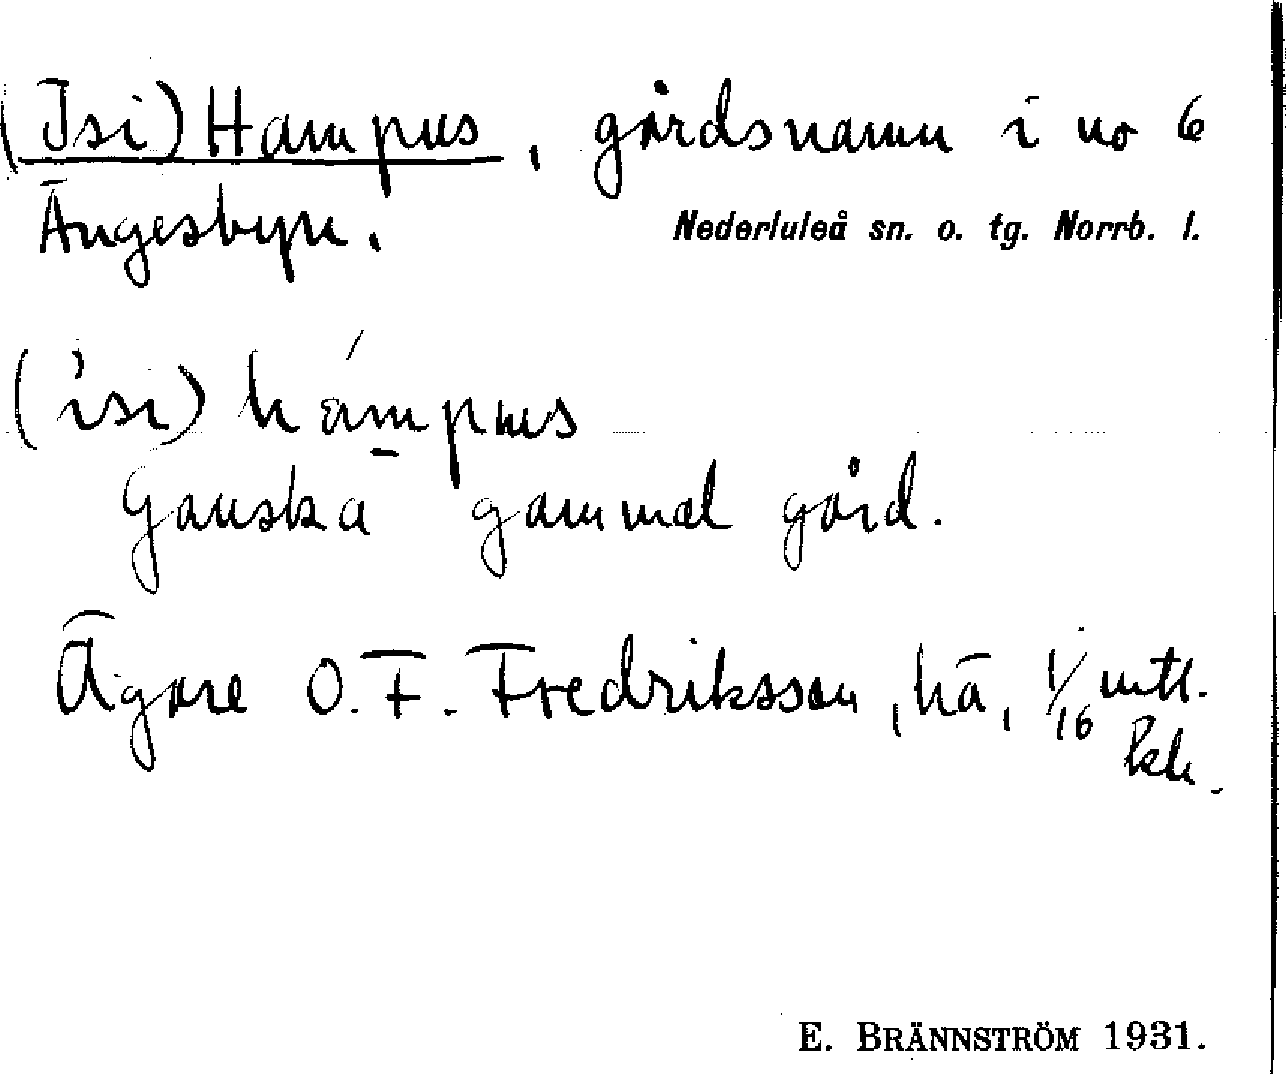 (Isi) Hampus, gårdsnamn i no 6
Ängesbyn. Nederluleå sn. o. tg. Norrb. l.
(isi) hampus
Ganska gammal gård.
Ägare O. F. Fredriksson, hä, 1/16 mtl.
kr.
E. BRÄNNSTRÖM 1931.